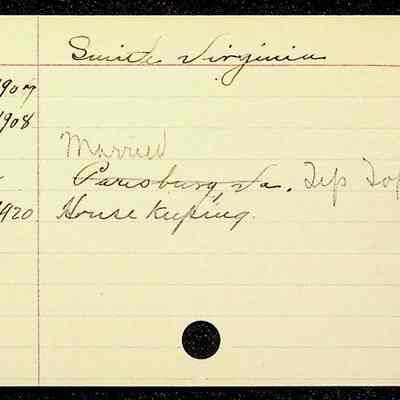 Smith Virginia
1907
1908
Married
Parisburg Va. Tip Top
1920 House Keeping.